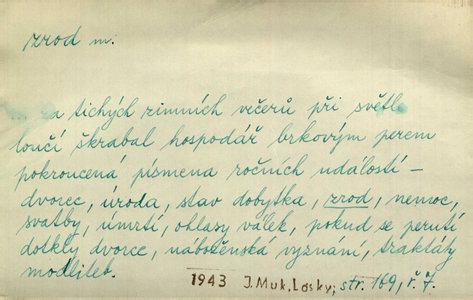 zrod m.
... za tichých zimních večerů při světle
loučí škrabal hospodář brkovým perem
pokroucená písmena ročních událostí –
dvorec, úroda, stav dobytka, zrod, nemoc,
svatby, úmrtí, ohlasy válek, pokud se perutí
dotkly dvorce, náboženská vyznání, traktáty
modliteb.
1943 J. Muk, Lásky, str. 169, ř. 7.